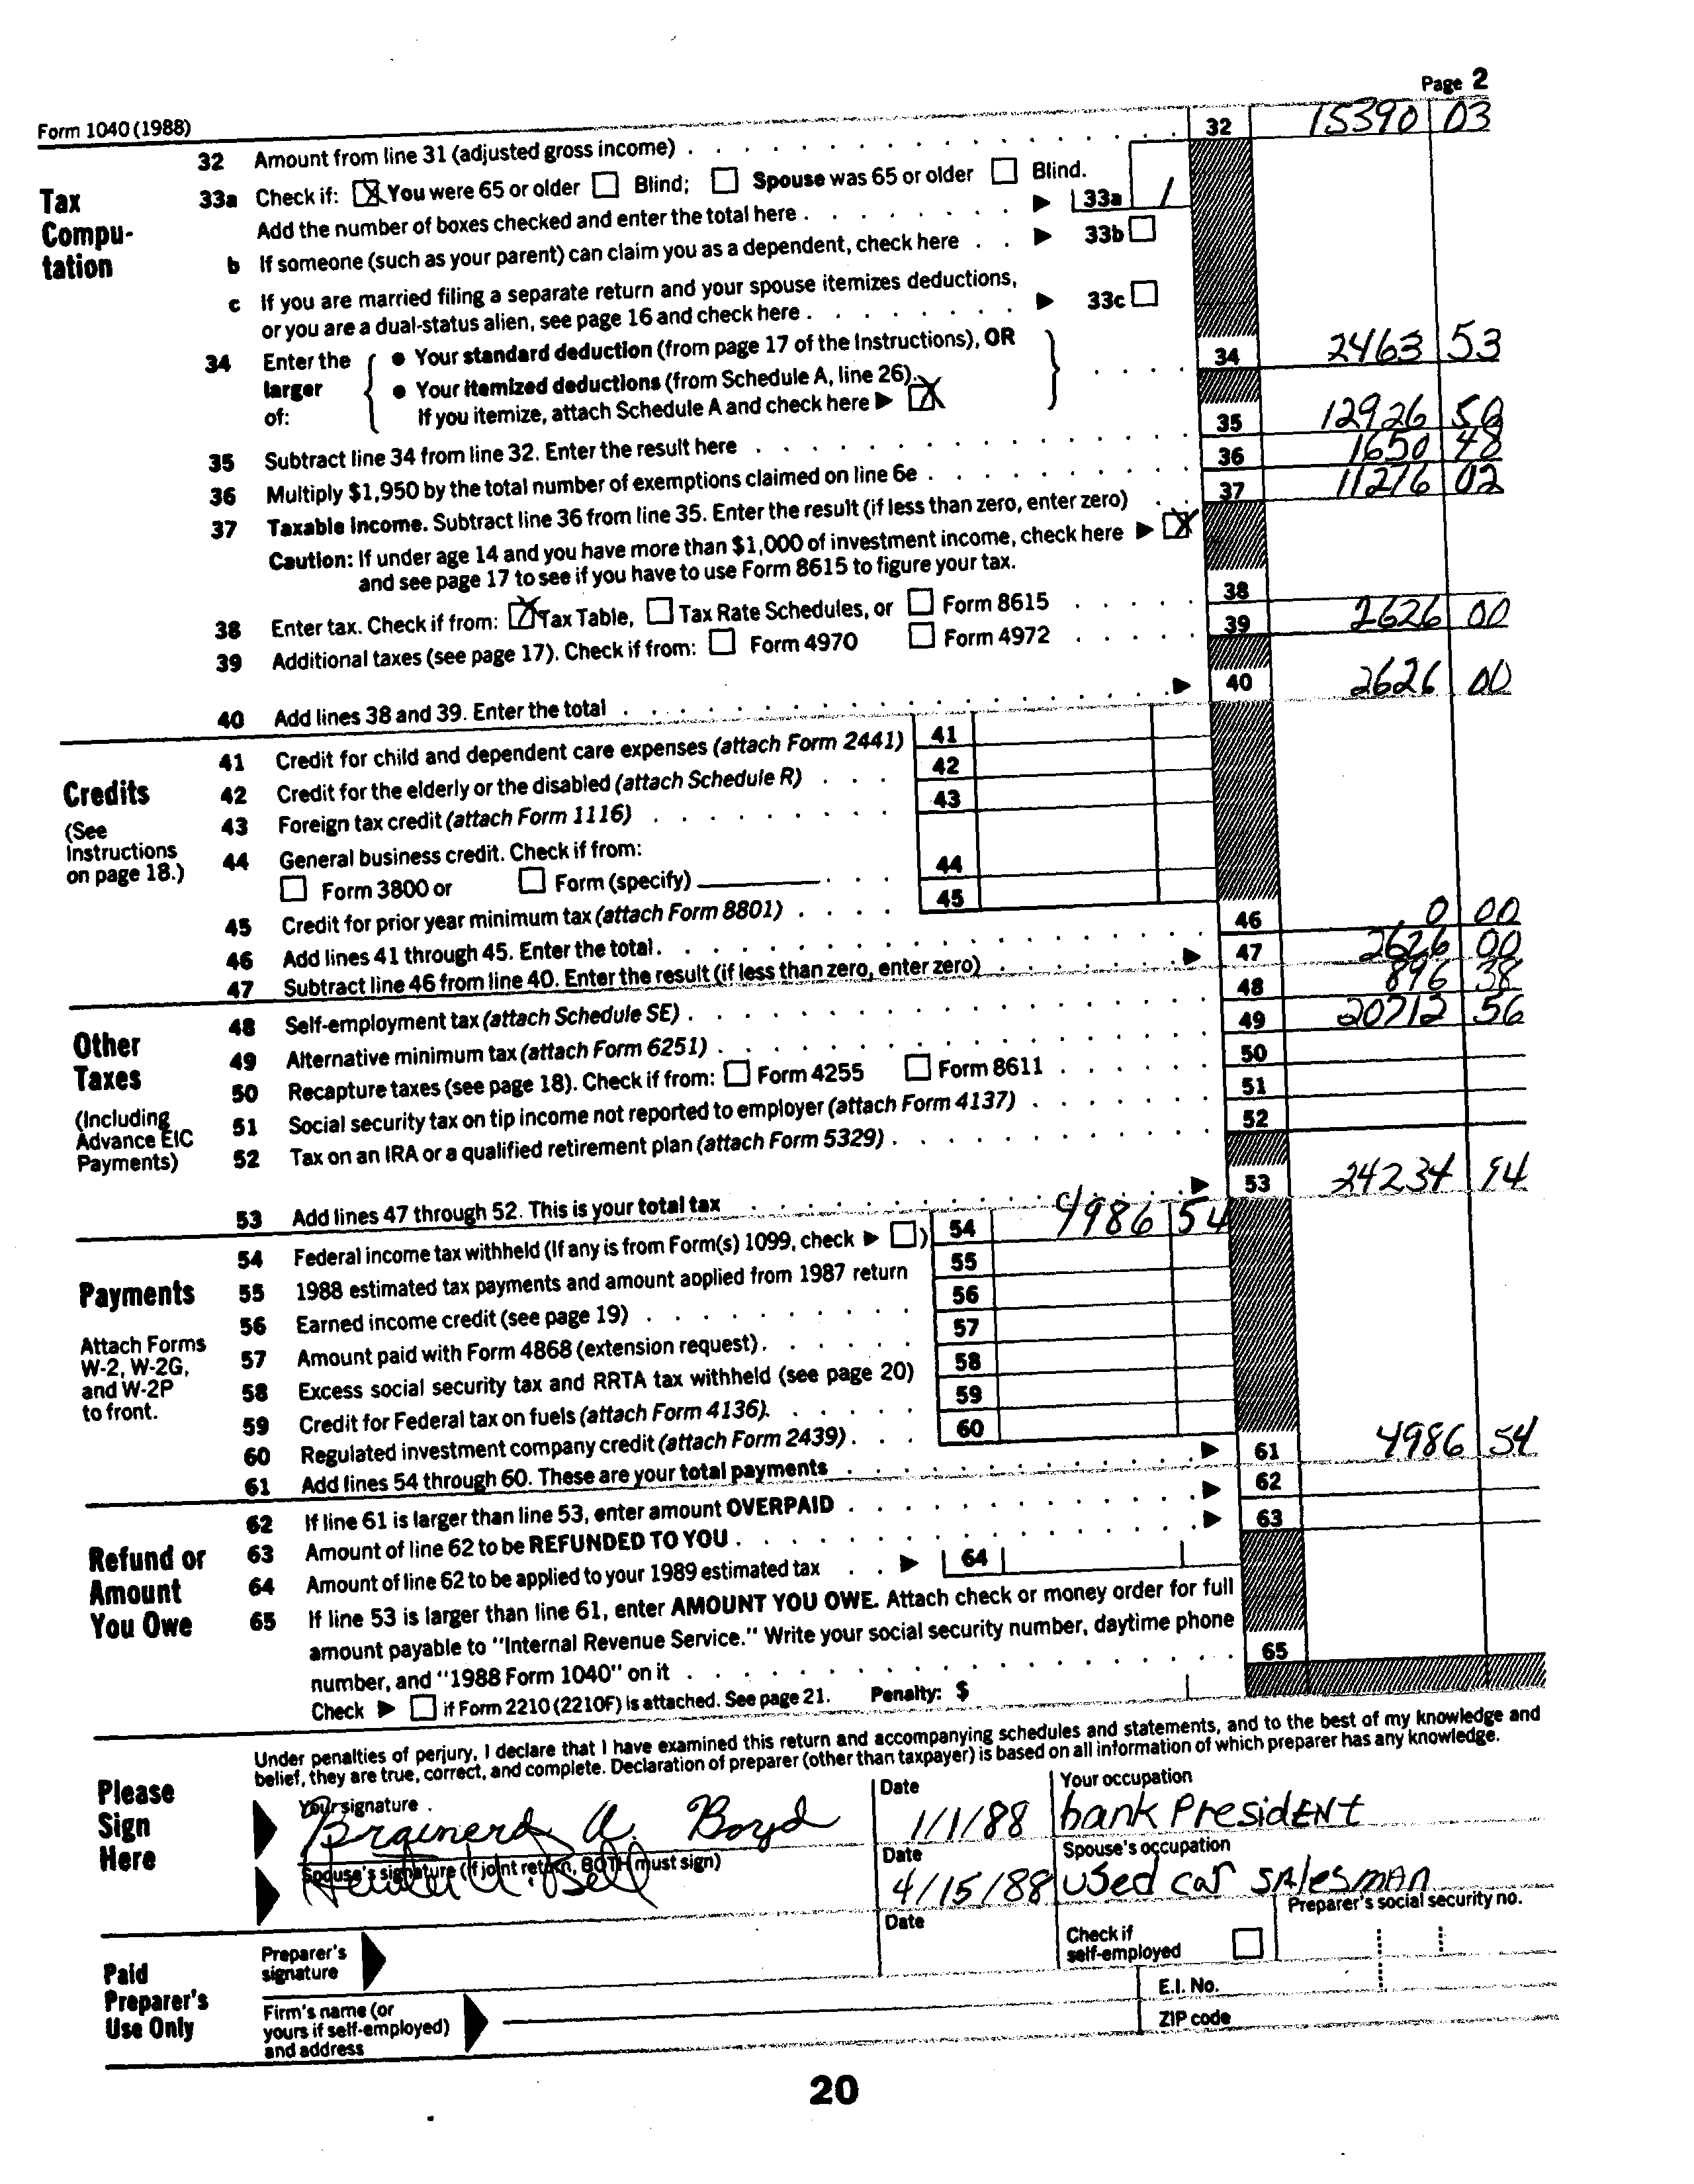 Page 2
Form 1040 (1988)
32 Amount from line 31 (adjusted gross income) 32 15390 03
Tax Compu-tation
33a Check if: X You were 65 or older Blind; Spouse was 65 or older Blind.
Add the number of boxes checked and enter the total here 33a 1
b If someone (such as your parent) can claim you as a dependent, check here 33b
c If you are married filing a separate return and your spouse itemizes deductions,
or you are a dual-status alien, see page 16 and check here 33c
34 Enter the larger of:
• Your standard deduction (from page 17 of the Instructions), OR
• Your itemized deductions (from Schedule A, line 26).
If you itemize, attach Schedule A and check here X
34 2463 53
35 Subtract line 34 from line 32. Enter the result here 35 12926 50
36 Multiply $1,950 by the total number of exemptions claimed on line 6e 36 1650 48
37 Taxable income. Subtract line 36 from line 35. Enter the result (if less than zero, enter zero) 37 11276 02
Caution: If under age 14 and you have more than $1,000 of investment income, check here X
and see page 17 to see if you have to use Form 8615 to figure your tax.
38 Enter tax. Check if from: X Tax Table, Tax Rate Schedules, or Form 8615 38
39 Additional taxes (see page 17). Check if from: Form 4970 Form 4972 39 2626 00
40 Add lines 38 and 39. Enter the total 40 2626 00
Credits
(See Instructions on page 18.)
41 Credit for child and dependent care expenses (attach Form 2441) 41
42 Credit for the elderly or the disabled (attach Schedule R) 42
43 Foreign tax credit (attach Form 1116) 43
44 General business credit. Check if from:
Form 3800 or Form (specify) 44
45 Credit for prior year minimum tax (attach Form 8801) 45
46 Add lines 41 through 45. Enter the total. 46 0 00
47 Subtract line 46 from line 40. Enter the result (if less than zero, enter zero) 47 2626 00
Other Taxes
(Including Advance EIC Payments)
48 Self-employment tax (attach Schedule SE) 48 896 38
49 Alternative minimum tax (attach Form 6251) 49 20712 56
50 Recapture taxes (see page 18). Check if from: Form 4255 Form 8611 50
51 Social security tax on tip income not reported to employer (attach Form 4137) 51
52 Tax on an IRA or a qualified retirement plan (attach Form 5329) 52
53 Add lines 47 through 52. This is your total tax 53 24234 94
Payments
Attach Forms W-2, W-2G, and W-2P to front.
54 Federal income tax withheld (If any is from Form(s) 1099, check ) 54 4986 54
55 1988 estimated tax payments and amount applied from 1987 return 55
56 Earned income credit (see page 19) 56
57 Amount paid with Form 4868 (extension request). 57
58 Excess social security tax and RRTA tax withheld (see page 20) 58
59 Credit for Federal tax on fuels (attach Form 4136). 59
60 Regulated investment company credit (attach Form 2439) 60
61 Add lines 54 through 60. These are your total payments 61 4986 54
Refund or Amount You Owe
62 If line 61 is larger than line 53, enter amount OVERPAID 62
63 Amount of line 62 to be REFUNDED TO YOU 63
64 Amount of line 62 to be applied to your 1989 estimated tax 64
65 If line 53 is larger than line 61, enter AMOUNT YOU OWE. Attach check or money order for full
amount payable to "Internal Revenue Service." Write your social security number, daytime phone
number, and "1988 Form 1040" on it 65
Check if Form 2210 (2210F) is attached. See page 21. Penalty: $
Please Sign Here
Under penalties of perjury, I declare that I have examined this return and accompanying schedules and statements, and to the best of my knowledge and
belief, they are true, correct, and complete. Declaration of preparer (other than taxpayer) is based on all information of which preparer has any knowledge.
Your signature Date Your occupation
Brainerd A. Boyd 1/1/88 bank PresidENt
Spouse's signature (if joint return, BOTH must sign) Date Spouse's occupation
4/15/88 used car SAlesmAn
Paid Preparer's Use Only
Preparer's signature Date Check if self-employed Preparer's social security no.
Firm's name (or yours if self-employed) and address E.I. No.
ZIP code
20